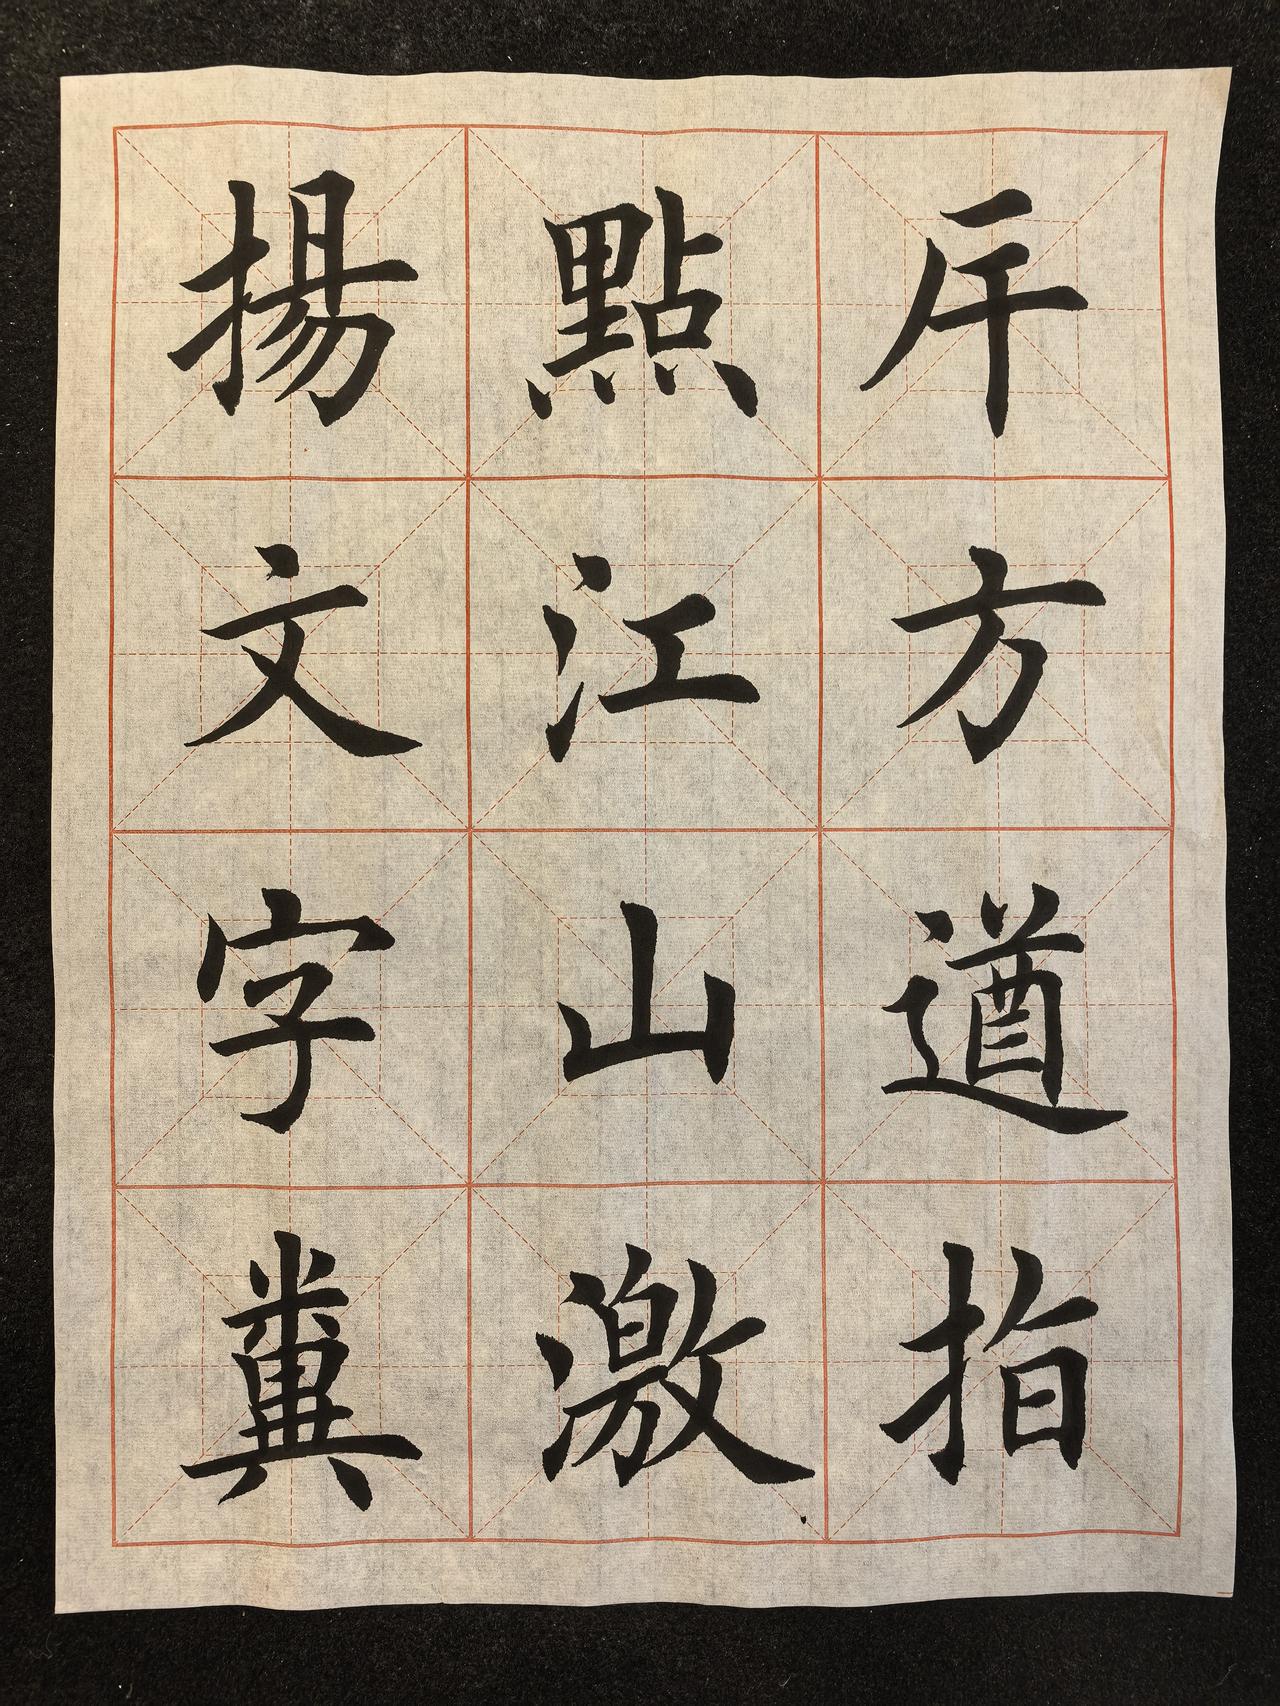 斥方遒指
點江山激
揚文字糞